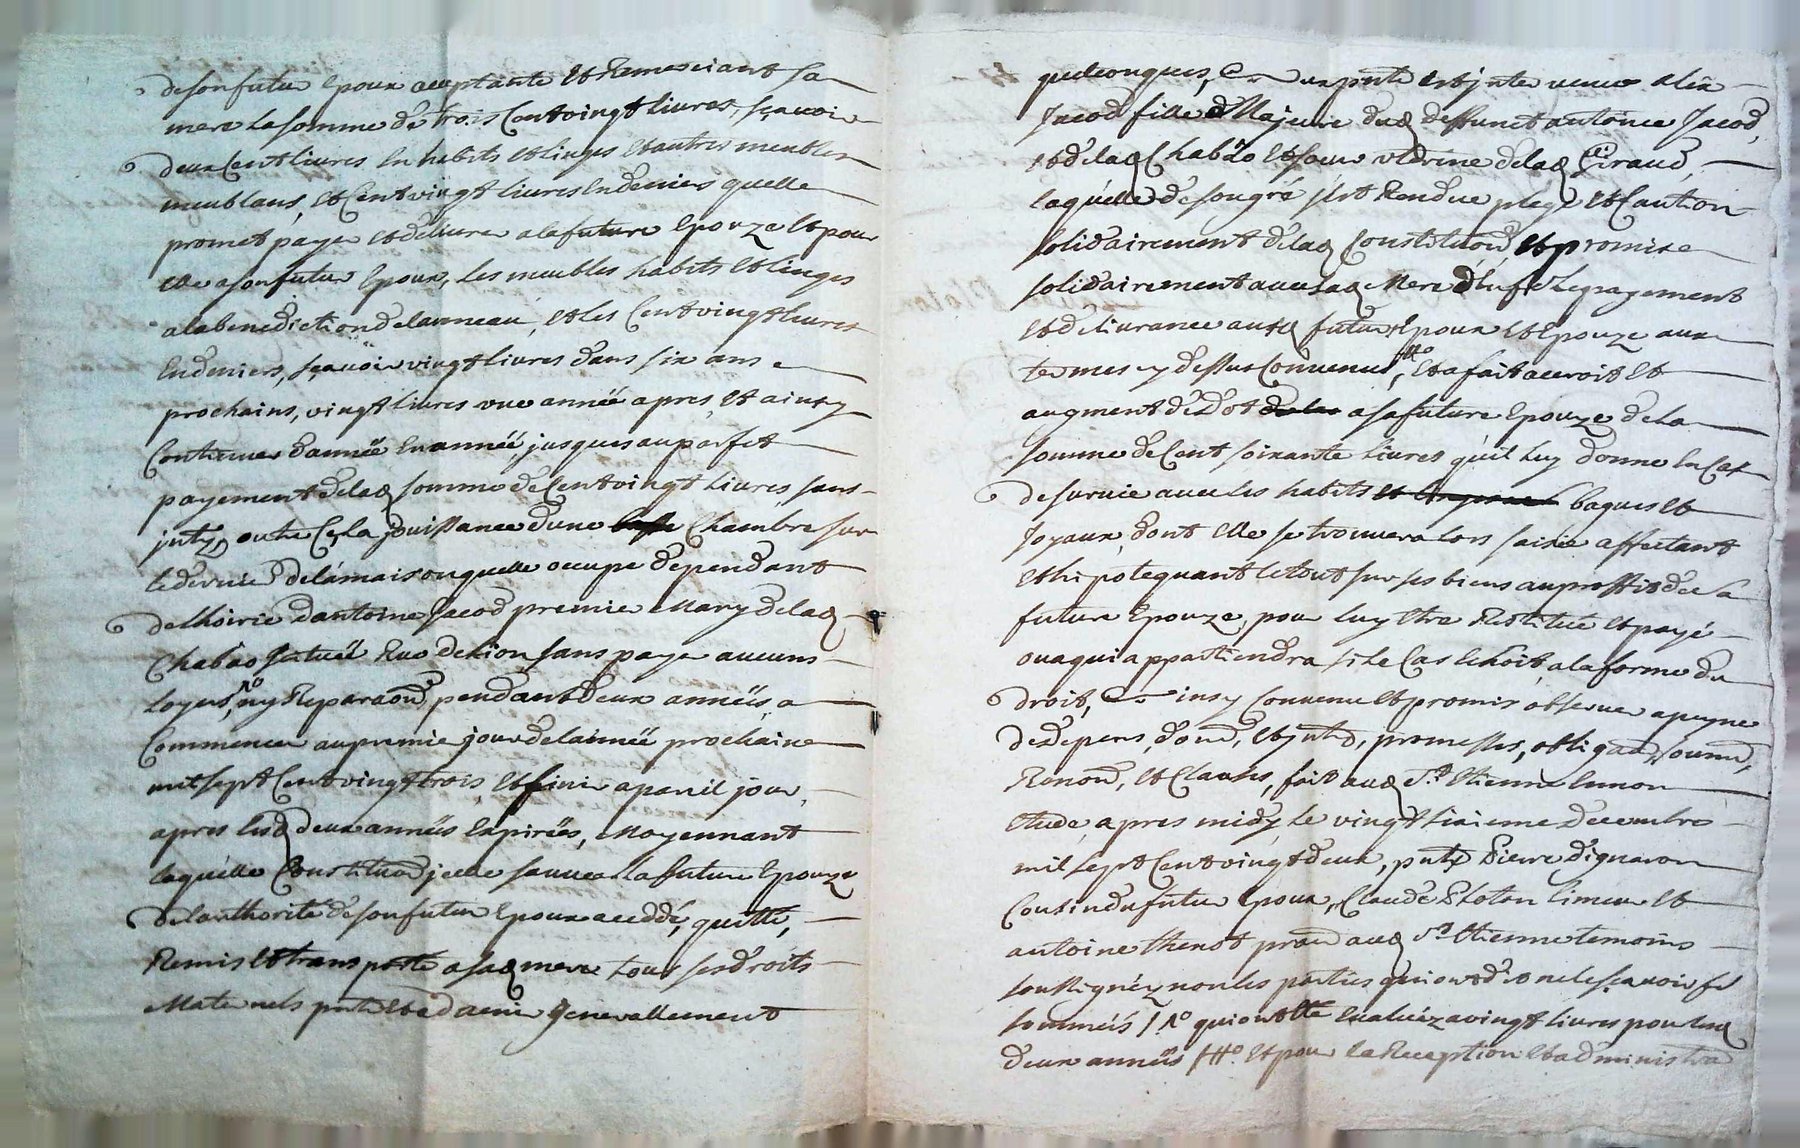 de son futur Epoux acceptante et Remerciant sa
mere la somme de trois Cent vingt livres, sçavoir
deux Cent livres En habits et linges et autres meubles
meublans, et Cent vingt livres En deniers quelle
promet payer et delivrer a la future Epouze et pour
elle a son futur Epoux, les meubles habits et linges
a la benediction de lanneau, et les Cent vingt livres
En deniers, sçavoir vingt livres dans six ans
prochains, vingt livres une année apres, et ainsy
Continuer d'année En année jusques au parfet
payement de lad somme de Cent vingt livres sans
jnts, outre Ce la jouissance d'une Chambre sur
le derrier de la maison quelle occupe dependant
de lhoirie d'antoine Jacod premier Mary de lad
Chabao situeé Rue de Lion sans payer aucuns
loyers, ny Reparaons pendant deux annéés a
Commencer au premier jour de lannéé prochaine
mil sept Cent vingt trois et finir a pareil jour
apres lesd deux annéés Expiréés, Moyennant
laquelle Constituon jcelle la future Epouze
de lauthorité de son futur Epoux a ceddé, quitté,
Remis et transporté a sad mere tous ses droits
Maternels pnts et advenir generallement
quelconques, Et a Estée pnte et jntervenue
Jacod fille Majeure dud deffunct antoine Jacod,
et de lad Chabao et soeur uterine de lad Giraud,
laquelle de son gré s'est Rendue plege et Caution
solidairement de lad Constituon, et promise
solidairement avec sad Mere de le payement
et delivrance auxd futurs Epoux et Epouze aux
termes cy dessus Convenus, Ho et a fait accroit et
augment de Dot a sa future Epouze de la
somme de Cent soixante livres qu'il luy donne En Cas
de survie avec les habits bagues et
Joyaux dont Elle se trouvera lors saisie affectant
et hipotequant le tout sur ses biens au proffit de sa
future Epouze, pour luy Etre Restitué et payé
ou a qui appartiendra si le Cas Echoit a la forme du
droit, ainsy Convenu et promis observer a peyne
De depens, dom, et jnts, promesses, obligaons, soumons,
Renons, et Clauses, fait aud St Etienne En mon
Etude apres midy le vingt sixieme Decembre
mil sept Cent vingt deux, pnts Pierre dignaron
Cousin du futur Epoux, Claude Ploton limeur et
antoine thenot pratn aud St Etienne temoins
soussignéz non les parties qui ont dit ne le sçavoir fe
sommeés / No qui ont etté Evaluéz a vingt livres pour lesd
deux annéés / Ho et pour la Reception et administra